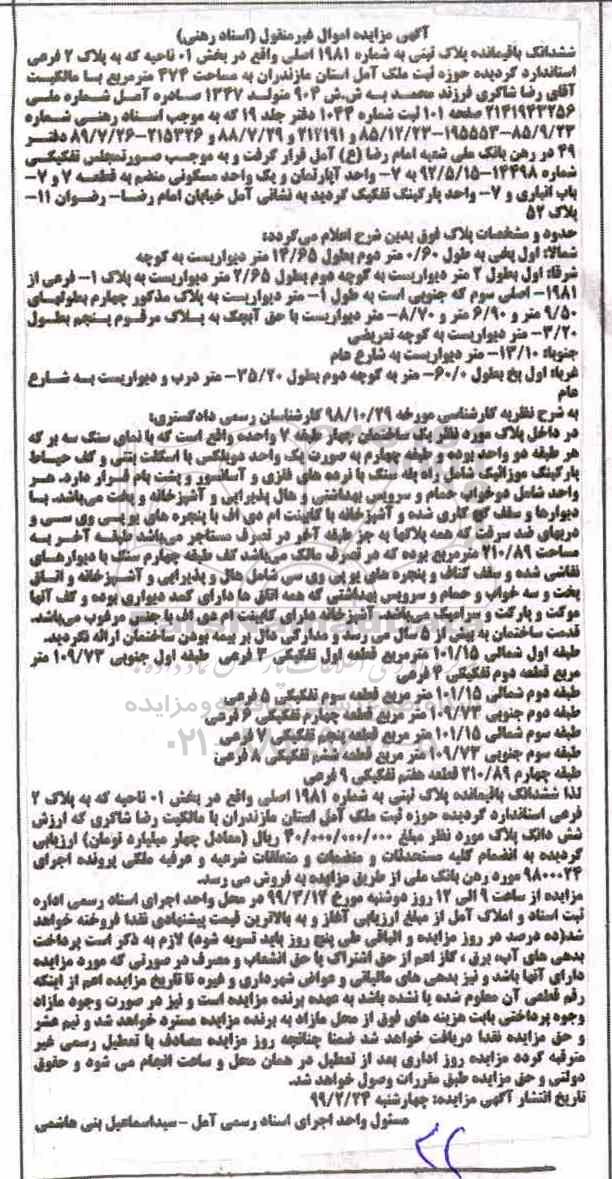 آگهی مزایده اموال غیرمنقول (اسناد رهنی)
ششدانگ باقیمانده پلاک ثبتی به شماره ۱۹۸۱ اصلی واقع در بخش ۰۱ ناحیه که به پلاک ۲ فرعی
استاندارد گردیده حوزه ثبت ملک آمل استان مازندران به مساحت ۴۷۴ مترمربع با مالکیت
آقای رضا شاکری فرزند محمد به ش.ش ۹۰۴ متولد ۱۳۴۷ صادره آمل شماره ملی
۲۱۴۱۹۴۳۲۵۶ صفحه ۱۰۱ ثبت شماره ۱۰۴۴ دفتر جلد ۱۹ که به موجب اسناد رهنی شماره
۸۵/۹/۲۳-۱۹۵۵۵۳-۸۵/۱۲/۲۳ و ۲۱۲۱۹۱ و ۸۸/۷/۲۹ و ۲۱۵۳۲۶-۸۹/۷/۲۶ دفتر
۴۹ در رهن بانک ملی شعبه امام رضا (ع) آمل قرار گرفت و به موجب صورتمجلس تفکیکی
شماره ۱۴۴۹۸-۹۲/۵/۱۵ به ۷- واحد آپارتمان و یک واحد مسکونی منضم به قطعه ۷ و ۷-
باب انباری و ۷- واحد پارکینگ تفکیک گردید به نشانی آمل خیابان امام رضا- رضوان ۱۱-
پلاک ۵۲
حدود و مشخصات پلاک فوق بدین شرح اعلام می‌گردد:
شمالا: اول پخی به طول ۰/۶۰ متر دوم بطول ۱۴/۶۵ متر دیواریست به کوچه
شرقا: اول بطول ۲ متر دیواریست به کوچه دوم بطول ۲/۶۵ متر دیواریست به پلاک ۱- فرعی از
۱۹۸۱- اصلی سوم که جنوبی است به طول ۱- متر دیواریست به پلاک مذکور چهارم بطولهای
۹/۵۰ متر و ۶/۹۰ متر و ۸/۷۰- متر دیواریست با حق آبچک به پلاک مرقوم پنجم بطول
۳/۲۰- متر دیواریست به کوچه تعریضی
جنوبا: ۱۳/۱۰- متر دیواریست به شارع عام
غربا: اول پخ بطول ۶۰/۰- متر به کوچه دوم بطول ۳۵/۲۰- متر درب و دیواریست به شارع
عام
به شرح نظریه کارشناسی مورخه ۹۸/۱۰/۲۹ کارشناسان رسمی دادگستری:
در داخل پلاک مورد نظر یک ساختمان چهار طبقه ۷ واحده واقع است که با نمای سنگ سه بر که
هر طبقه دو واحد بوده و طبقه چهارم به صورت یک واحد دوبلکس با اسکلت بتنی و کف حیاط
پارکینگ موزائیک شامل راه پله سنگ با نرده های فلزی و آسانسور و پشت بام قرار دارد. هر
واحد شامل دوخواب حمام و سرویس بهداشتی و هال پذیرایی و آشپزخانه و پخت می‌باشد. با
دیوارها و سقف گچ کاری شده و آشپزخانه با کابینت ام دی اف با پنجره های یو پی وی سی و
دربهای ضد سرقت که همه پلاکها به جز طبقه آخر در تصرف مستاجر می‌باشد طبقه آخر به
مساحت ۲۱۰/۸۹ مترمربع بوده که در تصرف مالک می‌باشد کف طبقه چهارم سنگ با دیوارهای
نقاشی شده و سقف کناف و پنجره های یو پی وی سی شامل هال و پذیرایی و آشپزخانه و اتاق
پخت و سه خواب و حمام و سرویس بهداشتی که همه اتاق ها دارای کمد دیواری بوده و کف آنها
موکت و پارکت و سرامیک می‌باشد. آشپزخانه دارای کابینت ام دی اف با جنس مرغوب می‌باشد.
قدمت ساختمان به بیش از ۵ سال می رسد و مدارکی دال بر بیمه بودن ساختمان ارائه نگردید.
طبقه اول شمالی ۱۰۱/۱۵ مترمربع قطعه اول تفکیکی ۳ فرعی طبقه اول جنوبی ۱۰۹/۷۳ متر
مربع قطعه دوم تفکیکی ۴ فرعی
طبقه دوم شمالی ۱۰۱/۱۵ متر مربع قطعه سوم تفکیکی ۵ فرعی
طبقه دوم جنوبی ۱۰۹/۷۳ متر مربع قطعه چهارم تفکیکی ۶ فرعی
طبقه سوم شمالی ۱۰۱/۱۵ متر مربع قطعه پنجم تفکیکی ۷ فرعی
طبقه سوم جنوبی ۱۰۹/۷۳ متر مربع قطعه ششم تفکیکی ۸ فرعی
طبقه چهارم ۲۱۰/۸۹ قطعه هفتم تفکیکی ۹ فرعی
لذا ششدانگ باقیمانده پلاک ثبتی به شماره ۱۹۸۱ اصلی واقع در بخش ۰۱ ناحیه که به پلاک ۲
فرعی استاندارد گردیده حوزه ثبت ملک آمل استان مازندران با مالکیت رضا شاکری که ارزش
شش دانگ پلاک مورد نظر مبلغ ۴۰/۰۰۰/۰۰۰/۰۰۰ ریال (معادل چهار میلیارد تومان) ارزیابی
گردیده به انضمام کلیه مستحدثات و منضمات و متعلقات شرعیه و عرفیه ملکی پرونده اجرای
۹۸۰۰۰۲۴ مورد رهن بانک ملی از طریق مزایده به فروش می رسد.
مزایده از ساعت ۹ الی ۱۲ روز دوشنبه مورخ ۹۹/۳/۱۲ در محل واحد اجرای اسناد رسمی اداره
ثبت اسناد و املاک آمل از مبلغ ارزیابی آغاز و به بالاترین قیمت پیشنهادی نقدا فروخته خواهد
شد(ده درصد در روز مزایده و الباقی طی پنج روز باید تسویه شود) لازم به ذکر است پرداخت
بدهی های آب، برق، گاز اعم از حق اشتراک یا حق انشعاب و مصرف در صورتی که مورد مزایده
دارای آنها باشد و نیز بدهی های مالیاتی و عوارض شهرداری و غیره تا تاریخ مزایده اعم از اینکه
رقم قطعی آن معلوم شده یا نشده باشد به عهده برنده مزایده است و نیز در صورت وجود مازاد
وجوه پرداختی بابت هزینه های فوق از محل مازاد به برنده مزایده مسترد خواهد شد و نیم عشر
و حق مزایده نقدا دریافت خواهد شد ضمنا چنانچه روز مزایده مصادف با تعطیل رسمی غیر
مترقبه گردد مزایده روز اداری بعد از تعطیل در همان محل و ساعت انجام می شود و حقوق
دولتی و حق مزایده طبق مقررات وصول خواهد شد.
تاریخ انتشار آگهی مزایده: چهارشنبه ۹۹/۲/۲۴
مسئول واحد اجرای اسناد رسمی آمل -سیداسماعیل بنی هاشمی